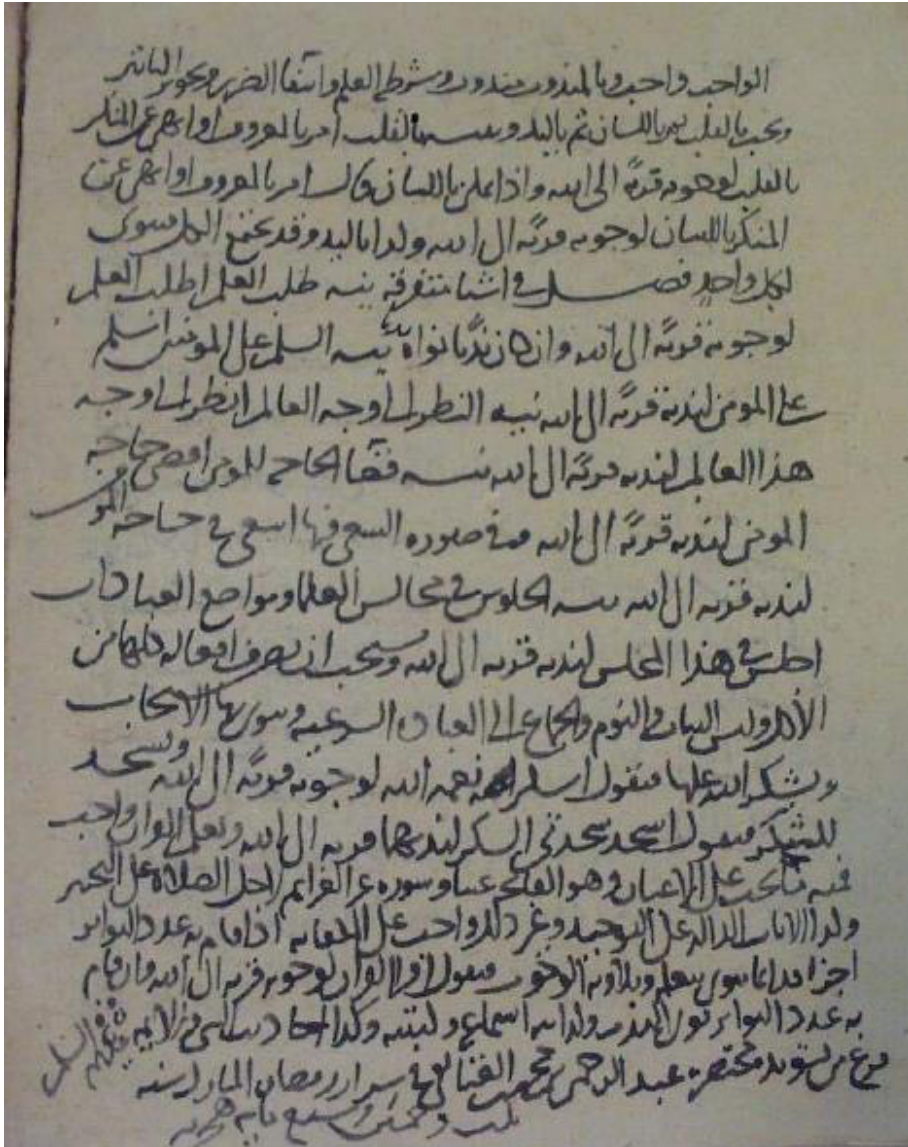 الواجب واجب وبالمندوب مندوب وشرطه العلم وانتفا الضرر وتجويز التاثير
ويجب بالقلب ثم باللسان ثم باليد بالقلب امر بالمعروف او انهى عن المنكر
بالقلب لوجوبه قربة الى الله واذا باللسان قال امر بالمعروف او انهى عن
المنكر باللسان لوجوبه قربة الى الله وكذا باليد وقد يجتمع الكل
لكل واحد فصل في اشيا متفرقة نية طلب العلم اطلب العلم
لوجوبه قربة الى الله وان كان ندبا نواه نية السلم على المومنين اسلم
على المومن لندبه قربة الى الله نية النظر الى وجه العالم انظر الى وجه
هذا العالم لندبه قربة الى الله نية قضا الحاجة للمومن اقضي حاجة
المومن لندبه قربة الى الله وفي صورة السعي فيها اسعى في حاجة المومن
لندبه قربة الى الله نية الجلوس في مجالس العلما ومواضع العبادات
اجلس في هذا المجلس لندبه قربة الى الله ويستحب ان يصرف افعاله كلها من
الأكل ولبس الثياب والنوم والجماع الى العبادة الشرعية
ويشكر الله عليها فيقول اشكر نعمة الله لوجوبه قربة الى الله ويسجد
للشكر فيقول اسجد سجدتي الشكر لندبهما قربة الى الله وتعلم القران واجب
فمنه ما يجب على الاعيان وهو الفاتحة عينا وسورة لاجل الصلاة على التخيير
وكذا الايات الدالة على التوحيد وغير ذلك واجب على الكفاية اذا قام به عدد التواتر
اجزا وتلاوته الوجوب فيقول اقرا القران لوجوبه قربة الى الله فان قام
به عدد التواتر نوى الندب وكذا نية اسماعه وكتبته وكذا احاديث النبي والايمة عليهم السلم
فرغ من تسويده مختصره عبد الرحمن بن محمد في رمضان المبارك سنة
وخمسين وسبع ماية هجرية